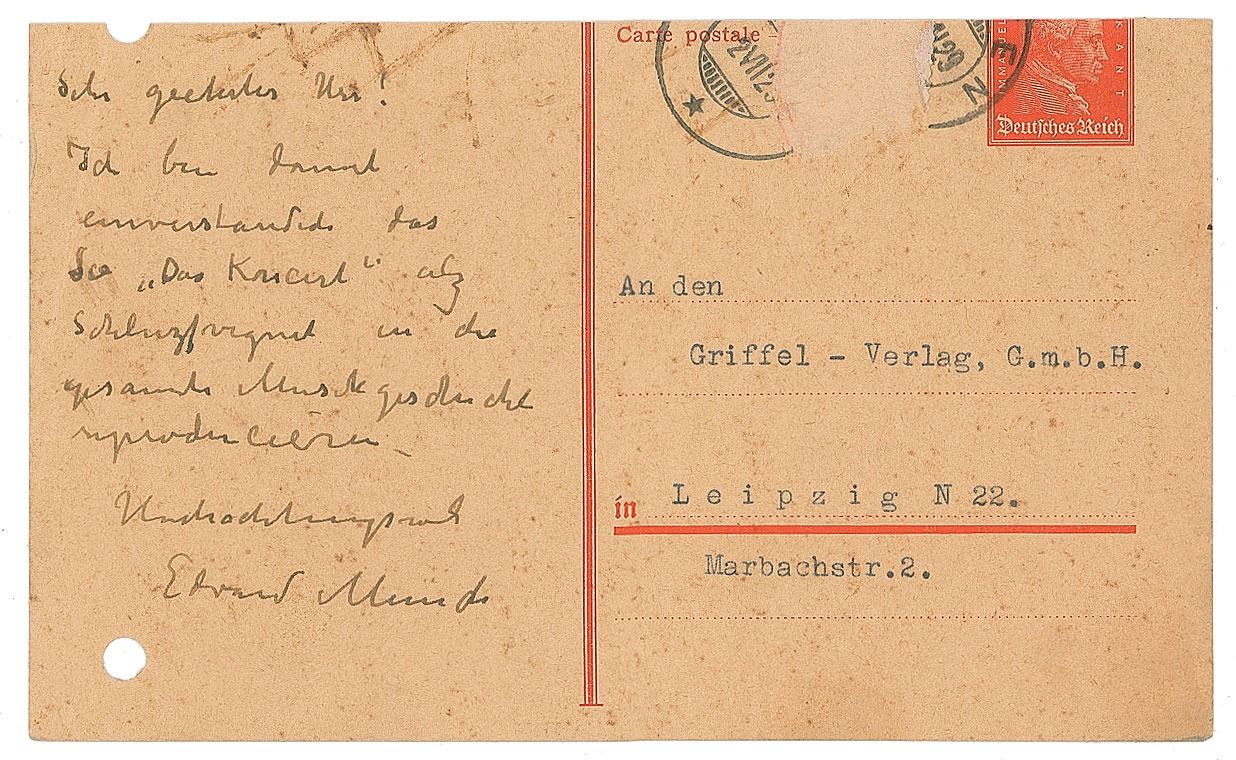 Sehr geehrter Herr!
Ich bin damit
einverstanden das
Sie „Das Konzert“ als
Schluszvignet in die
gesamte Musikgeschichte
reproducieren
Hochachtungsvoll
Edvard Munch
Carte postale
IMMANUEL KANT
Deutsches Reich
An den
Griffel - Verlag, G.m.b.H.
in Leipzig N 22.
Marbachstr.2.